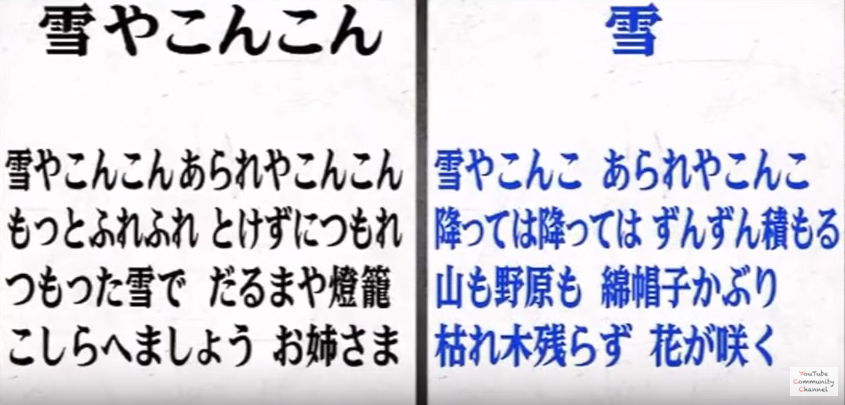 雪やこんこん
雪やこんこんあられやこんこん
もっとふれふれ とけずにつもれ
つもった雪で だるまや燈籠
こしらへましょう お姉さま
雪
雪やこんこ あられやこんこ
降っては降っては ずんずん積もる
山も野原も 綿帽子かぶり
枯れ木残らず 花が咲く
YouTube
Community
Channel